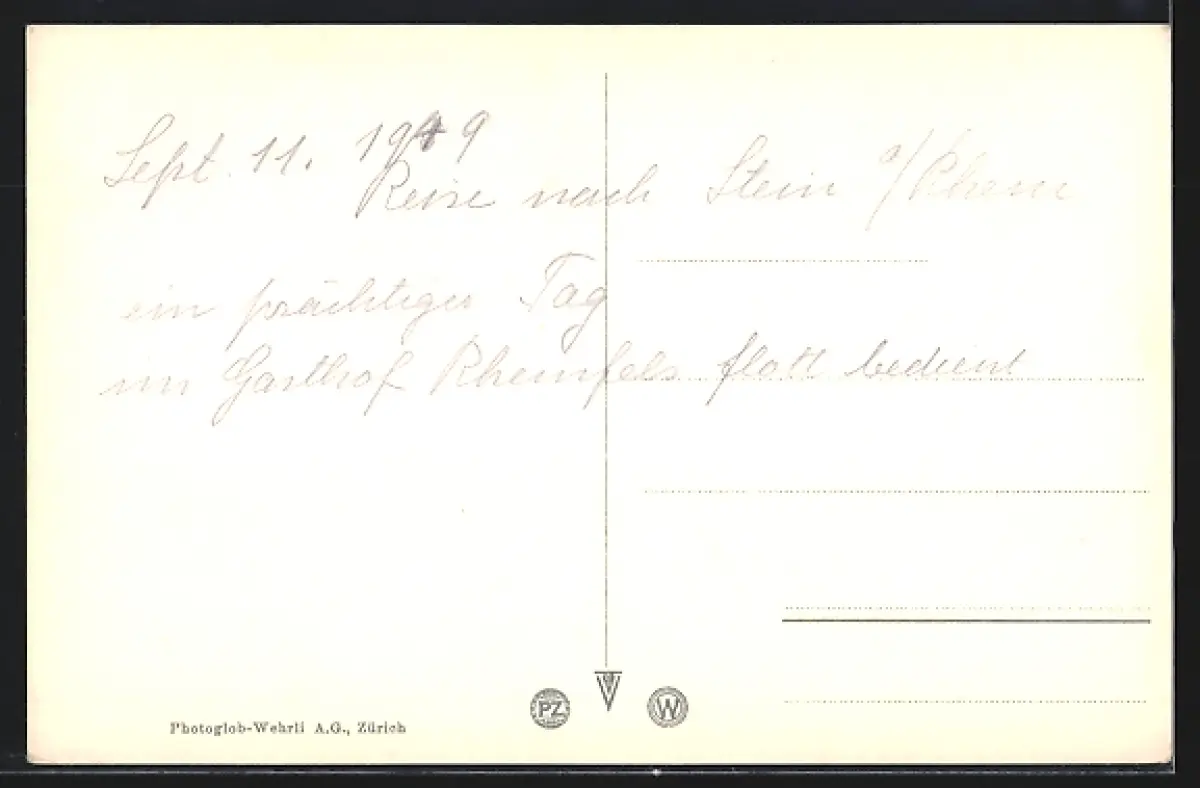 Sept. 11. 1949
Reise nach Stein a/Rhein
ein prächtiger Tag
im Gasthof Rheinfels flott bedient
PZ
W
Photoglob-Wehrli A.G., Zürich